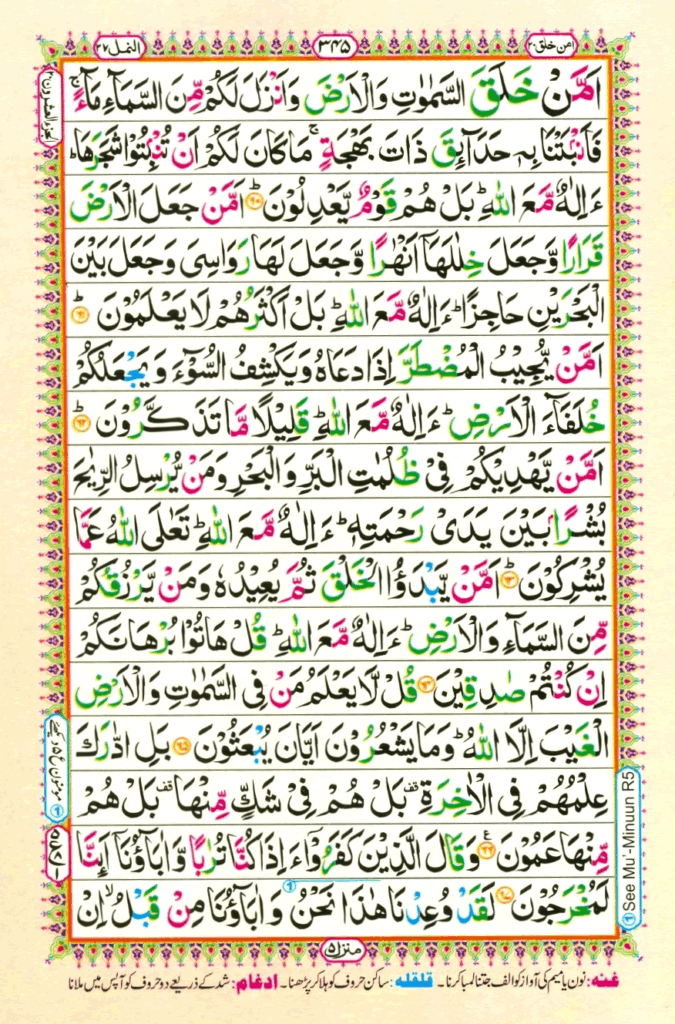 امن خلق ٢٠
٣٤٥
النمل ٢٧
اَمَّنْ خَلَقَ السَّمٰوٰتِ وَالْاَرْضَ وَاَنْزَلَ لَكُمْ مِّنَ السَّمَآءِ مَآءً ۚ
فَاَنْۢبَتْنَا بِهٖ حَدَآئِقَ ذَاتَ بَهْجَةٍ ۚ مَا كَانَ لَكُمْ اَنْ تُنْۢبِتُوْا شَجَرَهَا ؕ
ءَاِلٰهٌ مَّعَ اللّٰهِ ؕ بَلْ هُمْ قَوْمٌ يَّعْدِلُوْنَ ﴿٦٠﴾ اَمَّنْ جَعَلَ الْاَرْضَ
قَرَارًا وَّجَعَلَ خِلٰلَهَاۤ اَنْهٰرًا وَّجَعَلَ لَهَا رَوَاسِىَ وَجَعَلَ بَيْنَ
الْبَحْرَيْنِ حَاجِزًا ؕ ءَاِلٰهٌ مَّعَ اللّٰهِ ؕ بَلْ اَكْثَرُهُمْ لَا يَعْلَمُوْنَ ﴿٦١﴾
اَمَّنْ يُّجِيْبُ الْمُضْطَرَّ اِذَا دَعَاهُ وَيَكْشِفُ السُّوْٓءَ وَيَجْعَلُكُمْ
خُلَفَآءَ الْاَرْضِ ؕ ءَاِلٰهٌ مَّعَ اللّٰهِ ؕ قَلِيْلًا مَّا تَذَكَّرُوْنَ ﴿٦٢﴾
اَمَّنْ يَّهْدِيْكُمْ فِىْ ظُلُمٰتِ الْبَرِّ وَالْبَحْرِ وَمَنْ يُّرْسِلُ الرِّيٰحَ
بُشْرًاۢ بَيْنَ يَدَىْ رَحْمَتِهٖ ؕ ءَاِلٰهٌ مَّعَ اللّٰهِ ؕ تَعٰلَى اللّٰهُ عَمَّا
يُشْرِكُوْنَ ﴿٦٣﴾ اَمَّنْ يَّبْدَؤُا الْخَلْقَ ثُمَّ يُعِيْدُهٗ وَمَنْ يَّرْزُقُكُمْ
مِّنَ السَّمَآءِ وَالْاَرْضِ ؕ ءَاِلٰهٌ مَّعَ اللّٰهِ ؕ قُلْ هَاتُوْا بُرْهَانَكُمْ
اِنْ كُنْتُمْ صٰدِقِيْنَ ﴿٦٤﴾ قُلْ لَّا يَعْلَمُ مَنْ فِى السَّمٰوٰتِ وَالْاَرْضِ
الْغَيْبَ اِلَّا اللّٰهُ ؕ وَمَا يَشْعُرُوْنَ اَيَّانَ يُبْعَثُوْنَ ﴿٦٥﴾ بَلِ ادّٰرَكَ
عِلْمُهُمْ فِى الْاٰخِرَةِ ۫ بَلْ هُمْ فِىْ شَكٍّ مِّنْهَا ۫ بَلْ هُمْ
مِّنْهَا عَمُوْنَ ﴿٦٦﴾ وَقَالَ الَّذِيْنَ كَفَرُوْۤا ءَاِذَا كُنَّا تُرٰبًا وَّاٰبَآؤُنَاۤ اَئِنَّا
لَمُخْرَجُوْنَ ﴿٦٧﴾ لَقَدْ وُعِدْنَا هٰذَا نَحْنُ وَاٰبَآؤُنَا مِنْ قَبْلُ ۙ اِنْ
See Mu'-Minuun R5
منزل ٥
غنه: نون یا میم کی آواز کو الف جتنا لمبا کرنا۔ قلقلہ: ساکن حروف کو ہلا کر پڑھنا۔ ادغام: شد کے ذریعے دو حروف کو آپس میں ملانا